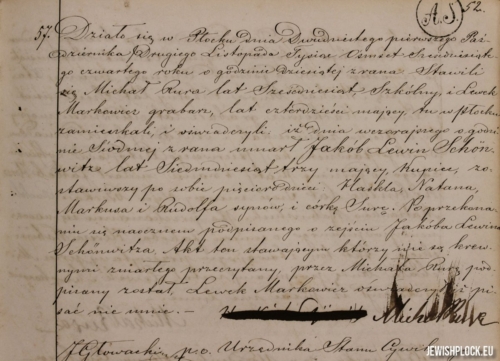 A.S. 52.
57. Działo się w Płocku dnia Dwudziestego pierwszego Paź
dziernika /Drugiego Listopada Tysiąc Osmset Sześćdziesiąt
go czwartego roku o godzinie dziesiątej z rana. Stawili
się Michał Rura lat Sześćdziesiąt, Szkólny, i Lewek
Markowicz grabarz, lat czterdzieści mający, tu w Płocku
zamieszkali, i oświadczyli iż dnia wczorajszego o godzi
nie Siódmej z rana umarł Jakób Lewin Schön
witz lat Siedmdziesiąt trzy mający, Kupiec, zo
stawiwszy po sobie pięcioro dzieci Haskla, Natana,
Markusa i Rudolfa synów, i córkę Surę. Po przekona
niu się naocznem podpisanego o zejściu Jakóba Lewina
Schönwitza. Akt ten stawającym którzy nie są krew
nymi zmarłego przeczytany, przez Michała Rurę pod
pisany został, Lewek Markowicz oświadczył iż pi
sać nie umie. —
Michał Rura
J Głowacki p.o. Urzędnika Stanu Cywil
JEWISHPLOCK.EU